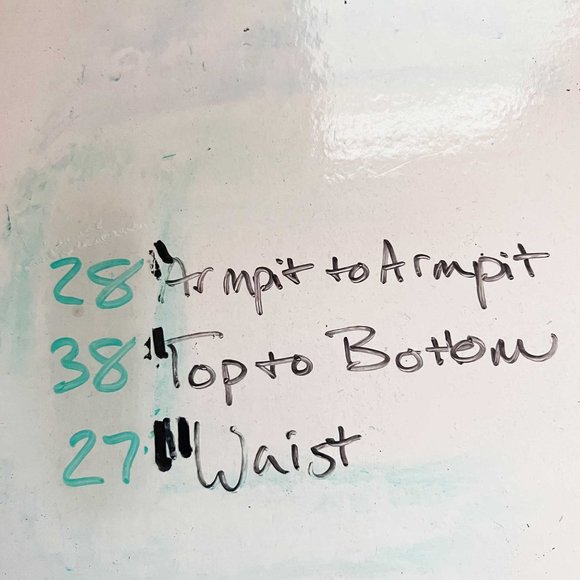 28" Armpit to Armpit
38" Top to Bottom
27" Waist